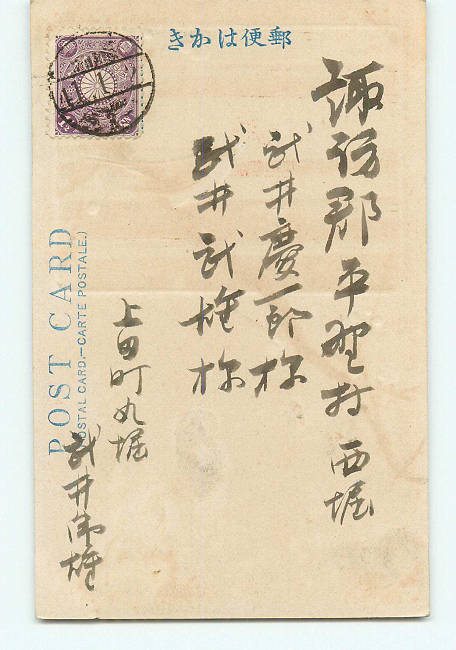 郵便はかき
諏訪郡平野村西堀
武井慶一郎様
武井武雄様
上田町丸堀
武井
POST CARD
(POSTAL CARD.—CARTE POSTALE.)